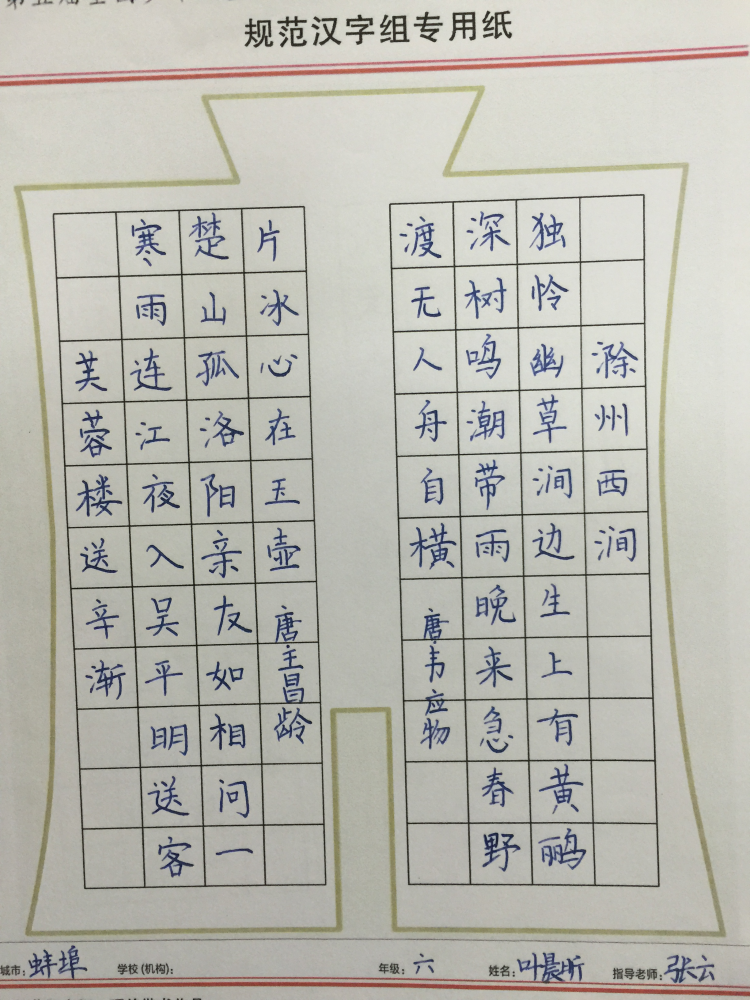 规范汉字组专用纸
滁州西涧
独怜幽草涧边生上有黄鹂
深树鸣潮带雨晚来急春野
渡无人舟自横 唐·韦应物
芙蓉楼送辛渐
寒雨连江夜入吴平明送客
楚山孤洛阳亲友如相问一
片冰心在玉壶 唐·王昌龄
城市：蚌埠 学校（机构）： 年级：六 姓名：叶晨昕 指导老师：张云